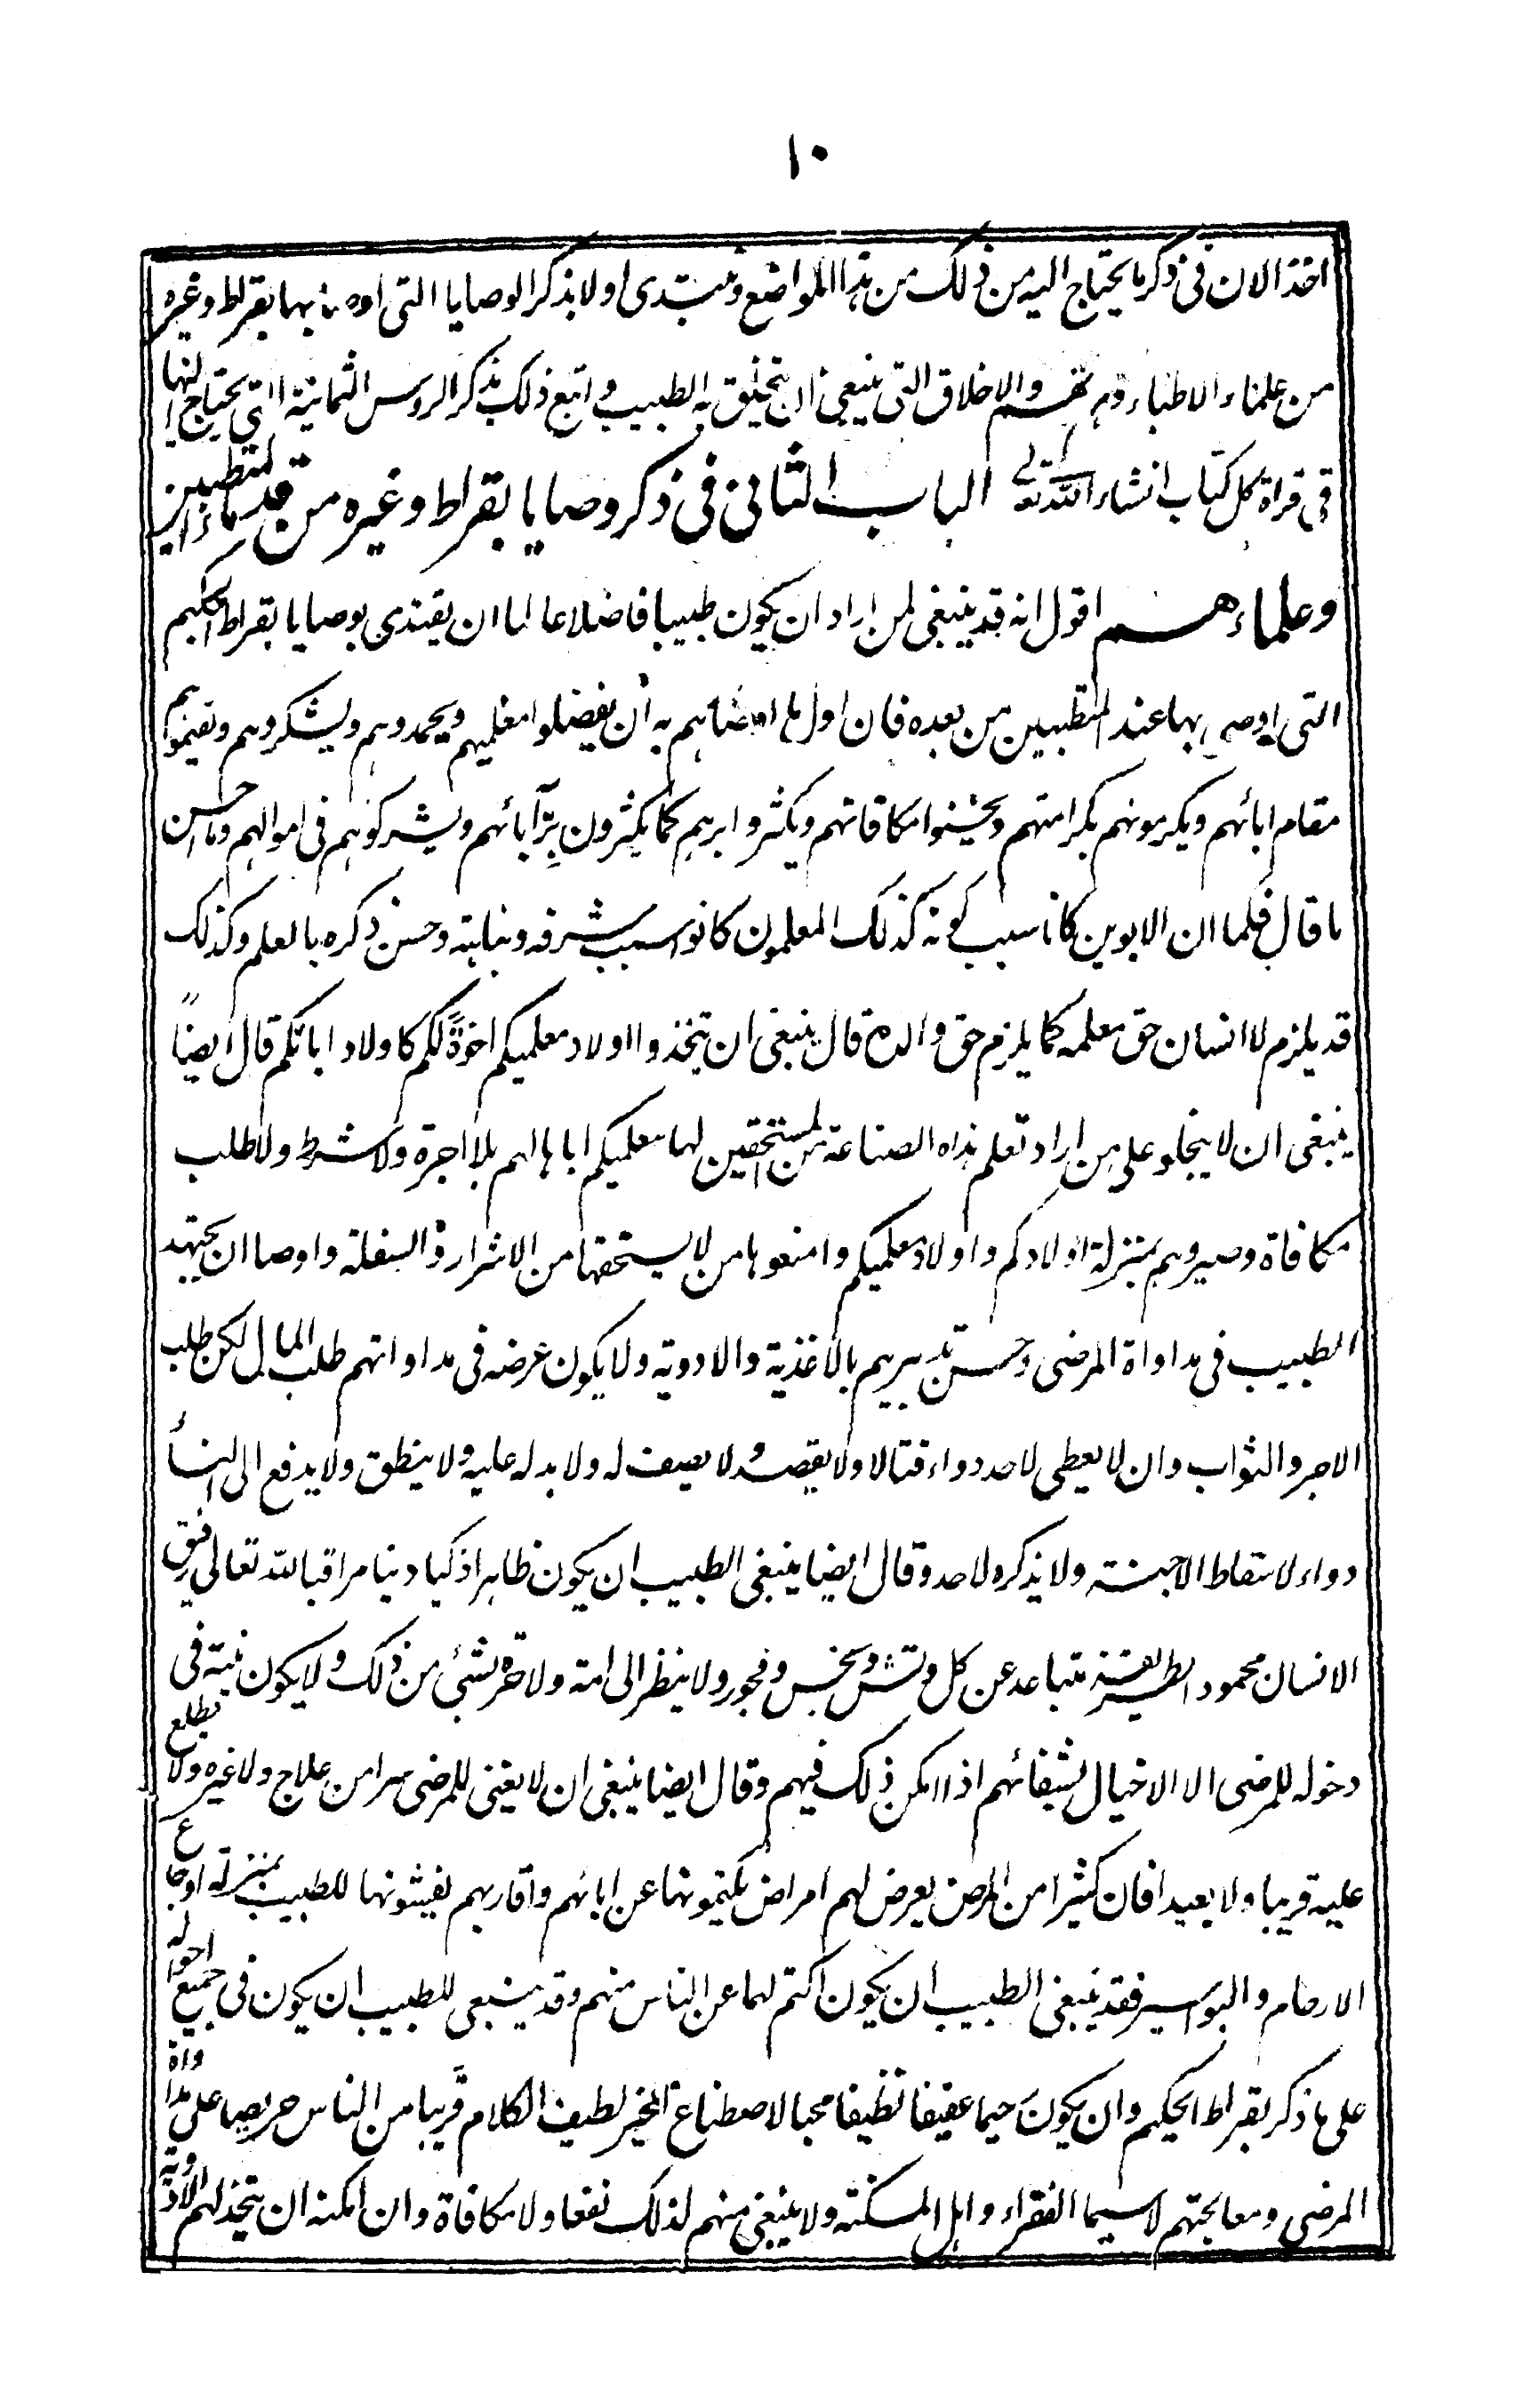 ١٠
اخذ الان فى ذكر ما يحتاج اليه من ذلك من هذا المواضع و نبتدى اولا بذكر الوصايا التى اوصانا بها بقراط وغيره
من علماء الاطباء وهم والاخلاق التى ينبغى ان يتخلق به الطبيب و اتبع ذلك بذكر الروس الثمانية التى يحتاج اليها
فى قراة كل كتاب انشاء الله تعالى الباب الثانى فى ذكر وصايا بقراط وغيره من قدماء المتطببين
وعلماءهم اقول انه قد ينبغى لمن اراد ان يكون طبيبا فاضلا عالما ان يقتدى بوصايا بقراط الحكيم
التى اوصى بها عند المتطببين من بعده فان اول ما اوصاهم به ان يفضلوا معلميهم ويحمدوهم ويشكروهم ويقيموهم
مقام ابائهم ويكرمونهم بكرامتهم ويحسنوا مكافاتهم ويكثروا برهم كما يكثرون برّ آبائهم ويشركوهم فى اموالهم وما احسن
ما قال فكلما ان الابوين كانا سبب كونه كذلك المعلمون كانوا سبب شرفه ونباهته وحسن ذكره بالعلم وكذلك
قد يلزم لا انسان حق معلمه كما يلزم حق والده قال ينبغى ان تتخذوا اولاد معلميكم اخوةً لكم كاولاد ابائكم قال ايضاً
ينبغى ان لا يبخلو على من اراد تعلم هذاه الصناعة من المستحقين لها معلميكم اباها لهم بلا اجرة ولا شرط ولا طلب
مكافاة وصيروهم بمنزلة اولادكم واولاد معلميكم وامنعوها من لا يستحقها من الاشرار و السفلة واوصا ان يجتهد
الطبيب فى مداواة المرضى وحسن تدبيرهم بالاغذية والادوية ولا يكون غرضه فى مداواتهم طلب المال لكن طلب
الاجر والثواب وان لا يعطى لاحد دواء قتالا ولا يقصده ولا يصف له ولا يدله عليه ولا ينطق ولا يدفع الى النساء
دواء لاسقاط الاجنة ولا يذكره لاحد وقال ايضا ينبغى الطبيب ان يكون طاهرا ذكيا دينا مراقبا لله تعالى رقيق
الانسان محمود الطريقة متباعد عن كل ونجس وفجور ولا ينظر الى امة ولا حرة بشئى من ذلك ولا يكون نيته فى
دخوله للمرضى الا الاحتيال لشفائهم اذا امكن ذلك فيهم وقال ايضا ينبغى ان لا يفشى للمرضى سرا من علاج ولا غيره ولا يطلع
عليه قريبا ولا بعيدا فان كثيرا من المرضى يعرض لهم امراض يكتمونها عن ابائهم واقاربهم يفشونها للطبيب بمنزلة اوجاع
الارحام والبواسير فقد ينبغى الطبيب ان يكون اكتم لهما عن الناس منهم وقد ينبغى للطبيب ان يكون فى جميع احواله
على ما ذكر بقراط الحكيم وان يكون رحيما عفيفا نظيفا محبا لاصطناع الخير لطيف الكلام قريبا من الناس حريصا على مداواة
المرضى ومعالجتهم لاسيما الفقراء و اهل المسكنة ولا ينبغى منهم لذلك نفعا ولا مكافاة وان امكنه ان يتخذ لهم الادوية